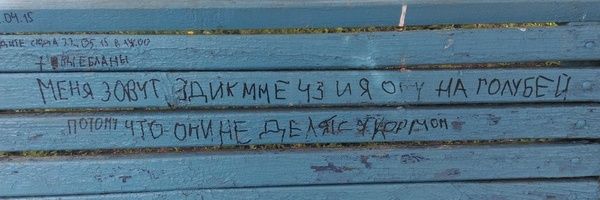 .04.15
ДИТЕ СЮДА 22.05.15 В 14.00
МЕНЯ ЗОВУТ ЭДИК МНЕ 43 И Я ОРУ НА ГОЛУБЕЙ
ПОТОМУ ЧТО ОНИ НЕ ДЕЛЯТСЯ КОРМОМ